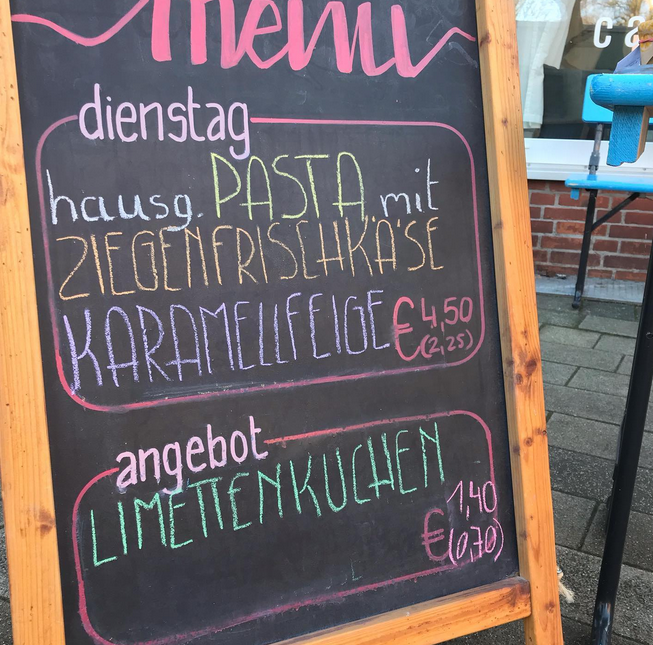 menü
dienstag
hausg. PASTA mit
ZIEGENFRISCHKÄSE
KARAMELLFEIGE €4,50
(2,25)
angebot
LIMETTENKUCHEN
1,40
€(0,70)
ca